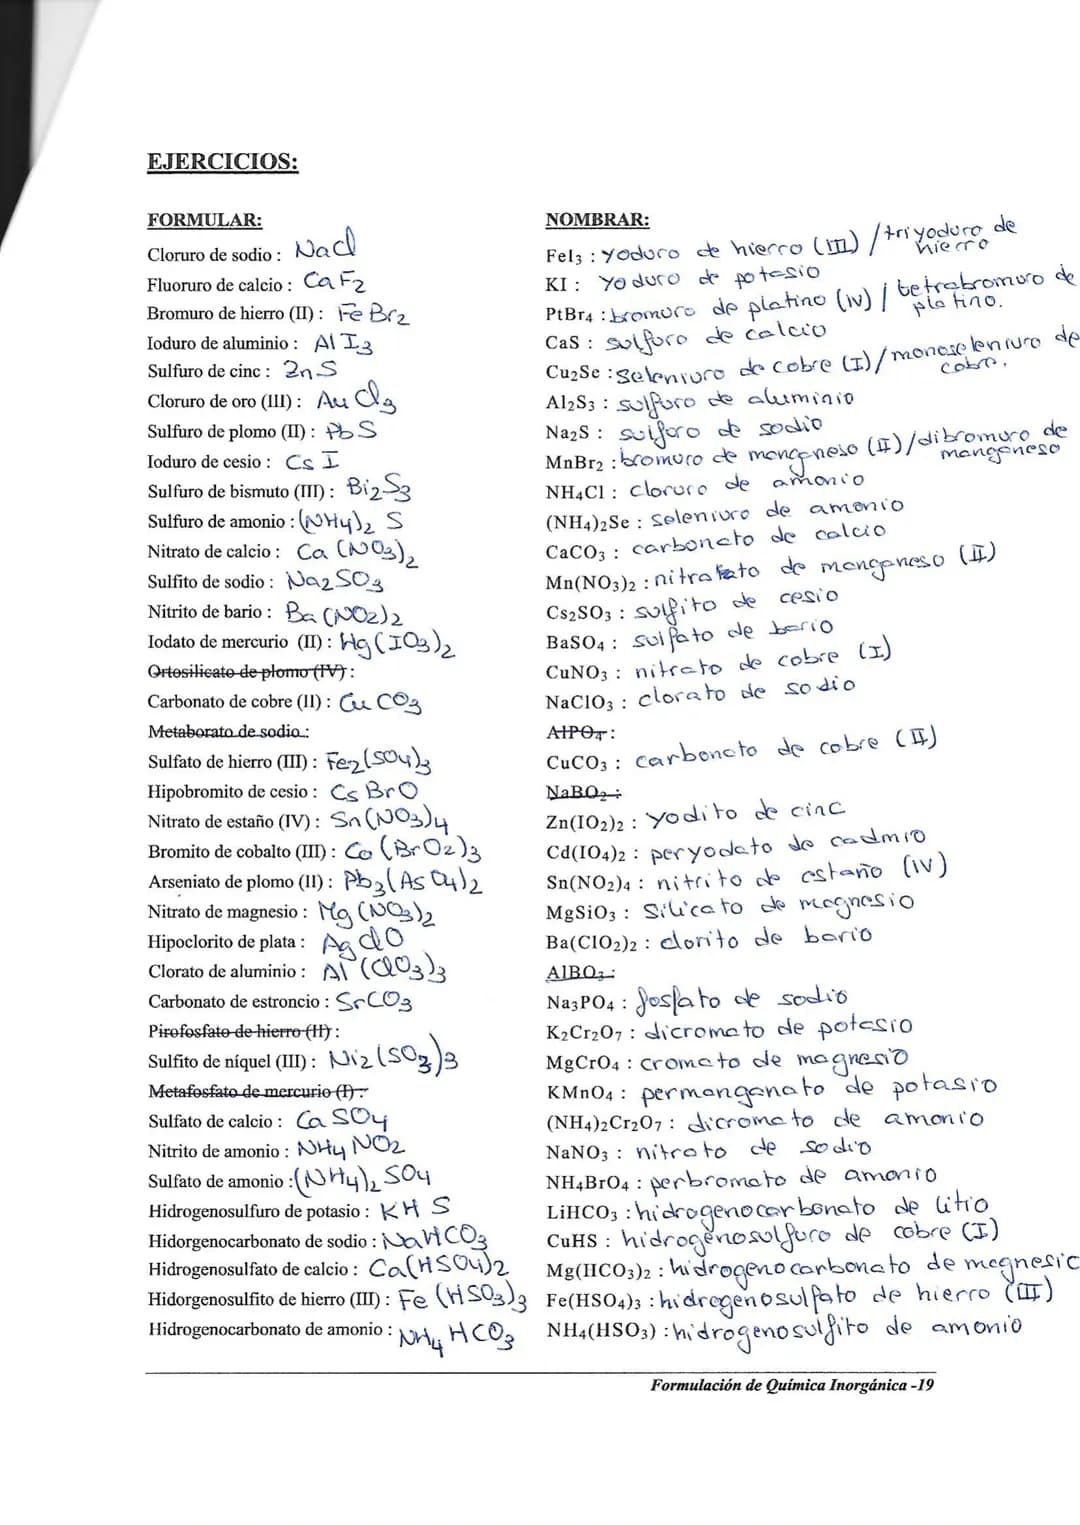 EJERCICIOS:
FORMULAR:
Cloruro de sodio : NaCl
Fluoruro de calcio : CaF2
Bromuro de hierro (II) : FeBr2
Ioduro de aluminio : AlI3
Sulfuro de cinc : ZnS
Cloruro de oro (III) : AuCl3
Sulfuro de plomo (II) : PbS
Ioduro de cesio : CsI
Sulfuro de bismuto (III) : Bi2S3
Sulfuro de amonio : (NH4)2 S
Nitrato de calcio : Ca (NO3)2
Sulfito de sodio : Na2SO3
Nitrito de bario : Ba (NO2)2
Iodato de mercurio (II) : Hg(IO3)2
Ortosilicato de plomo (IV) :
Carbonato de cobre (II) : CuCO3
Metaborato de sodio :
Sulfato de hierro (III) : Fe2(SO4)3
Hipobromito de cesio : CsBrO
Nitrato de estaño (IV) : Sn(NO3)4
Bromito de cobalto (III) : Co(BrO2)3
Arseniato de plomo (II) : Pb3(AsO4)2
Nitrato de magnesio : Mg(NO3)2
Hipoclorito de plata : AgClO
Clorato de aluminio : Al(ClO3)3
Carbonato de estroncio : SrCO3
Pirofosfato de hierro (II) :
Sulfito de níquel (III) : Ni2(SO3)3
Metafosfato de mercurio (I) :
Sulfato de calcio : CaSO4
Nitrito de amonio : NH4NO2
Sulfato de amonio : (NH4)2 SO4
Hidrogenosulfuro de potasio : KHS
Hidorgenocarbonato de sodio : NaHCO3
Hidrogenosulfato de calcio : Ca(HSO4)2
Hidorgenosulfito de hierro (III) : Fe (HSO3)3
Hidrogenocarbonato de amonio : NH4HCO3
NOMBRAR:
FeI3 : yoduro de hierro (III) / triyoduro de hierro
KI : Yoduro de potasio
PtBr4 : bromuro de platino (IV) / tetrabromuro de platino.
CaS : sulfuro de calcio
Cu2Se : seleniuro de cobre (I) / monoseleniuro de cobre.
Al2S3 : sulfuro de aluminio
Na2S : sulfuro de sodio
MnBr2 : bromuro de manganeso (II) / dibromuro de manganeso
NH4Cl : cloruro de amonio
(NH4)2Se : seleniuro de amonio
CaCO3 : carbonato de calcio
Mn(NO3)2 : de manganeso (II)
Cs2SO3 : sulfito de cesio
BaSO4 : sulfato de bario
CuNO3 : nitrato de cobre (I)
NaClO3 : clorato de sodio
AlPO4 :
CuCO3 : carbonato de cobre (II)
NaBO2 :
Zn(IO2)2 : yodito de cinc
Cd(IO4)2 : peryodato de cadmio
Sn(NO2)4 : nitrito de estaño (IV)
MgSiO3 : Silicato de magnesio
Ba(ClO2)2 : clorito de bario
AlBO3 :
Na3PO4 : fosfato de sodio
K2Cr2O7 : dicromato de potasio
MgCrO4 : cromato de magnesio
KMnO4 : permanganato de potasio
(NH4)2Cr2O7 : dicromato de amonio
NaNO3 : nitrato de sodio
NH4BrO4 : perbromato de amonio
LiHCO3 : hidrogenocarbonato de litio
CuHS : hidrogenosulfuro de cobre (I)
Mg(HCO3)2 : hidrogenocarbonato de magnesio
Fe(HSO4)3 : hidrogenosulfato de hierro (III)
NH4(HSO3) : hidrogenosulfito de amonio
Formulación de Química Inorgánica -19